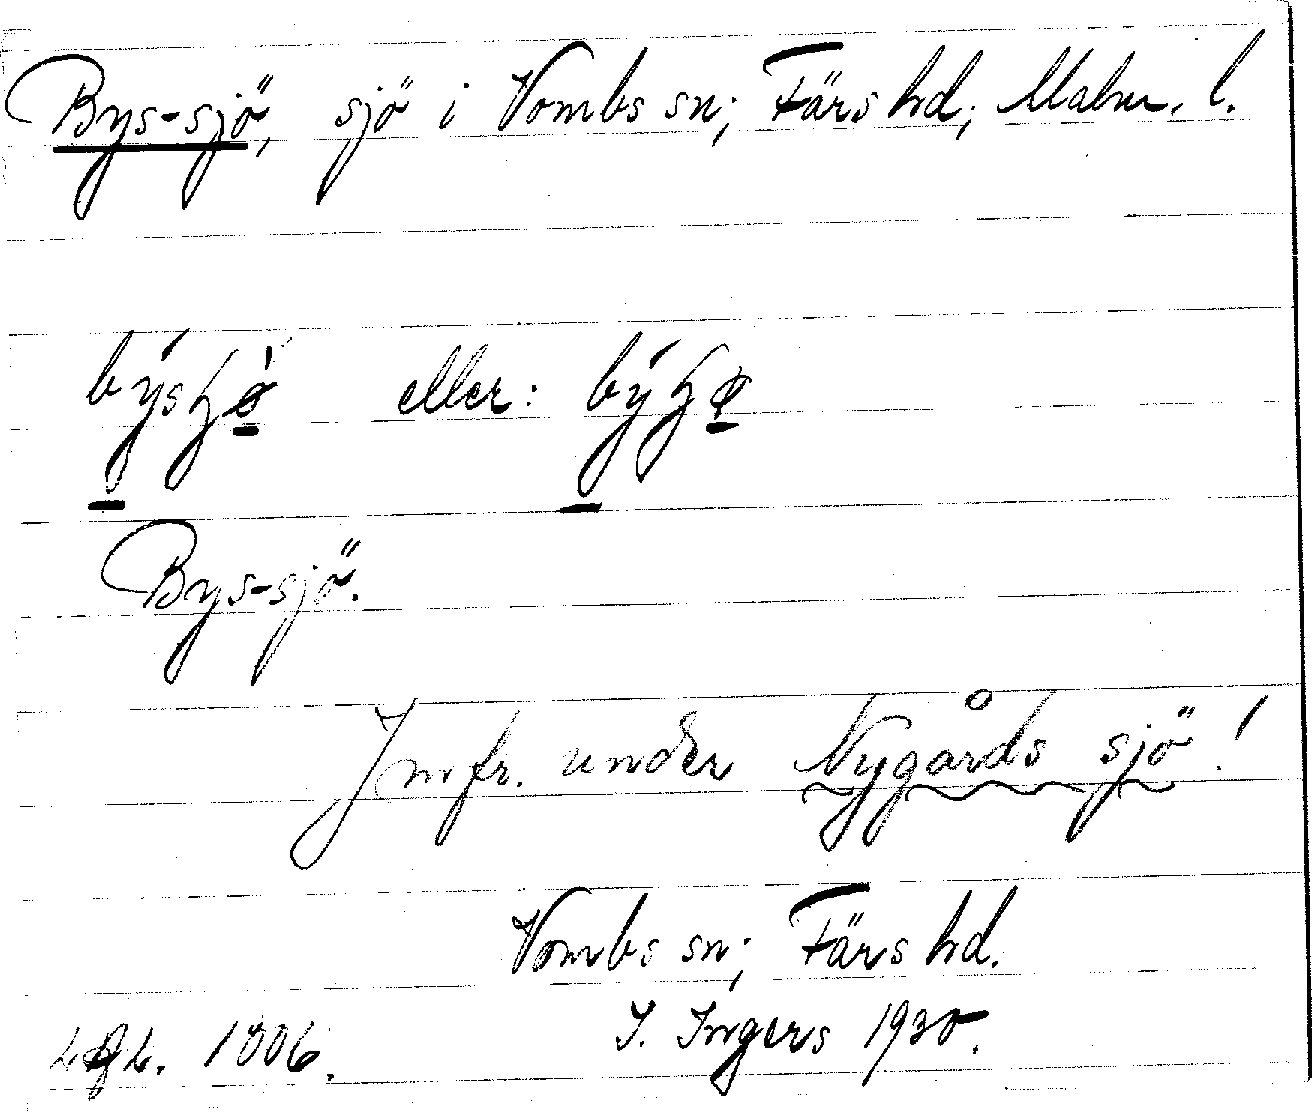 Bys-sjö, sjö i Vombs sn; Färs hd; Malm. l.
eller:
Bys-sjö.
Jmfr. under Nygårds sjö!
Vombs sn; Färs hd.
I. Ingers 1930.
1006.